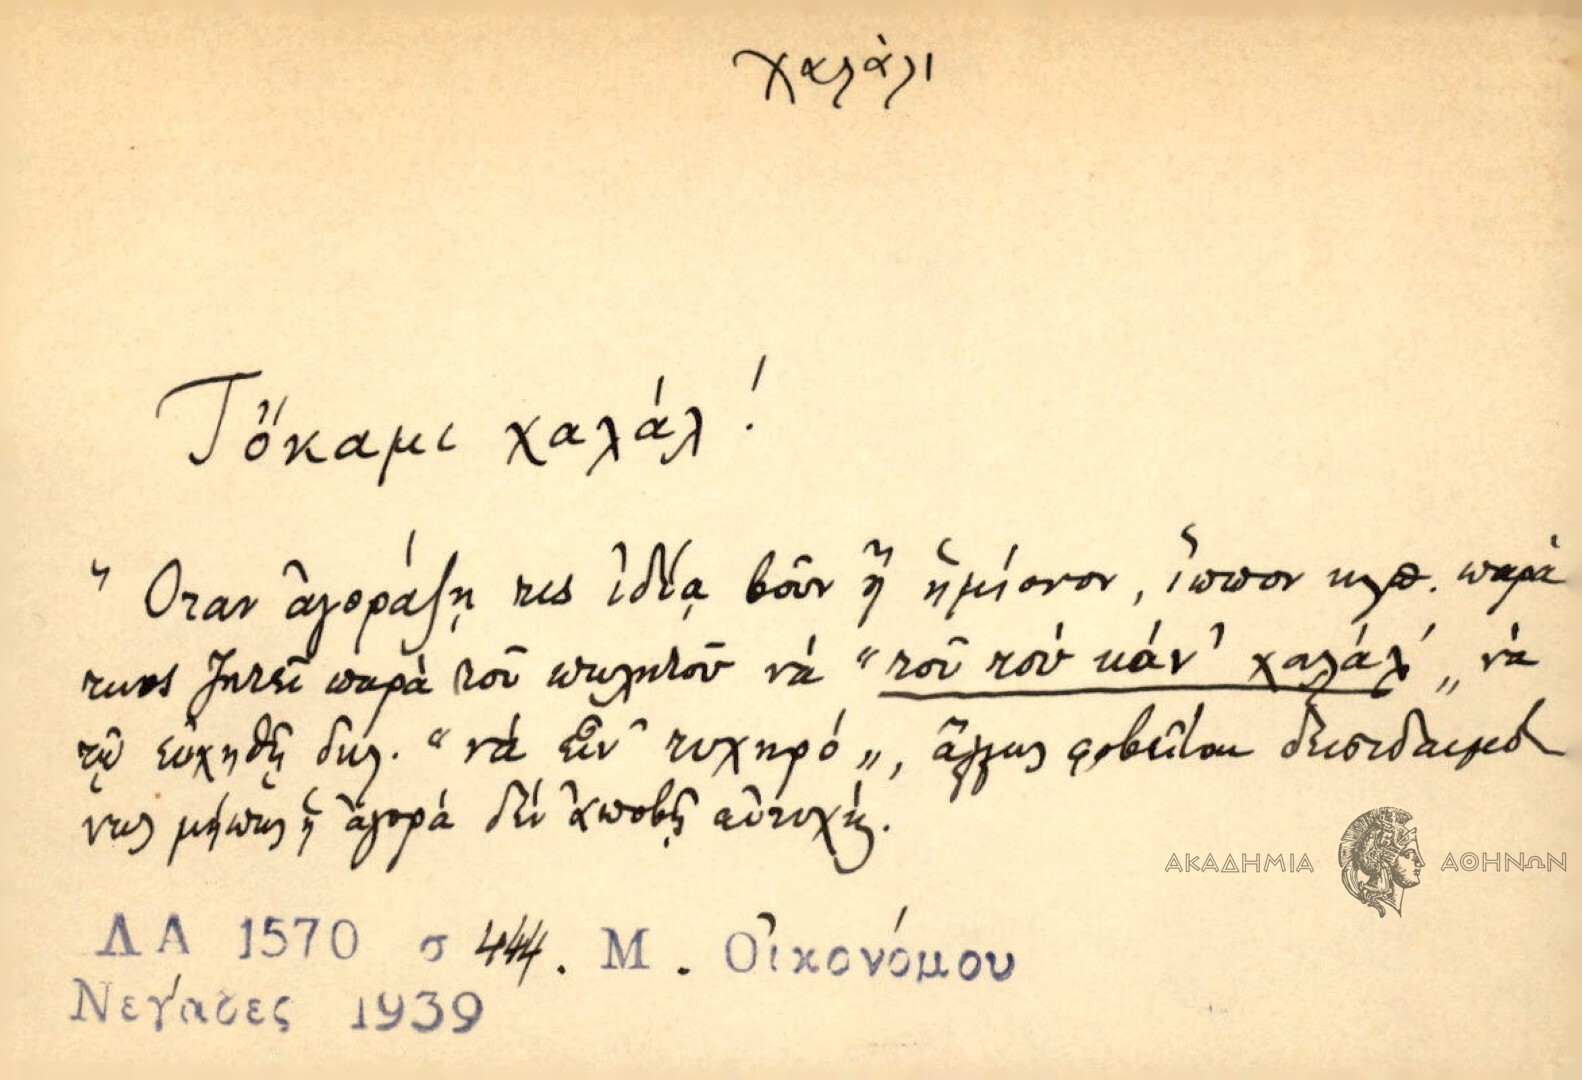 χαλάλι
Τὄκαμι χαλάλ!
Ὅταν ἀγοράσῃ τις ἰδίᾳ βοῦν ἢ ἡμίονον, ἵππον κλπ. παρά
τινος ζητεῖ παρὰ τοῦ πωλητοῦ νὰ "τοῦ τοὺ κάν' χαλάλ'" νὰ
τῷ εὐχηθῇ δηλ. "νά εἶν' τυχηρό", ἄλλως φοβεῖται δεισιδαιμό
νως μήπως ἡ ἀγορά δέν ἀποβῇ εὐτυχής.
ΛΑ 1570 σ 444. Μ. Οἰκονόμου
Νεγάδες 1939
ΑΚΑΔΗΜΙΑ ΑΘΗΝΩΝ